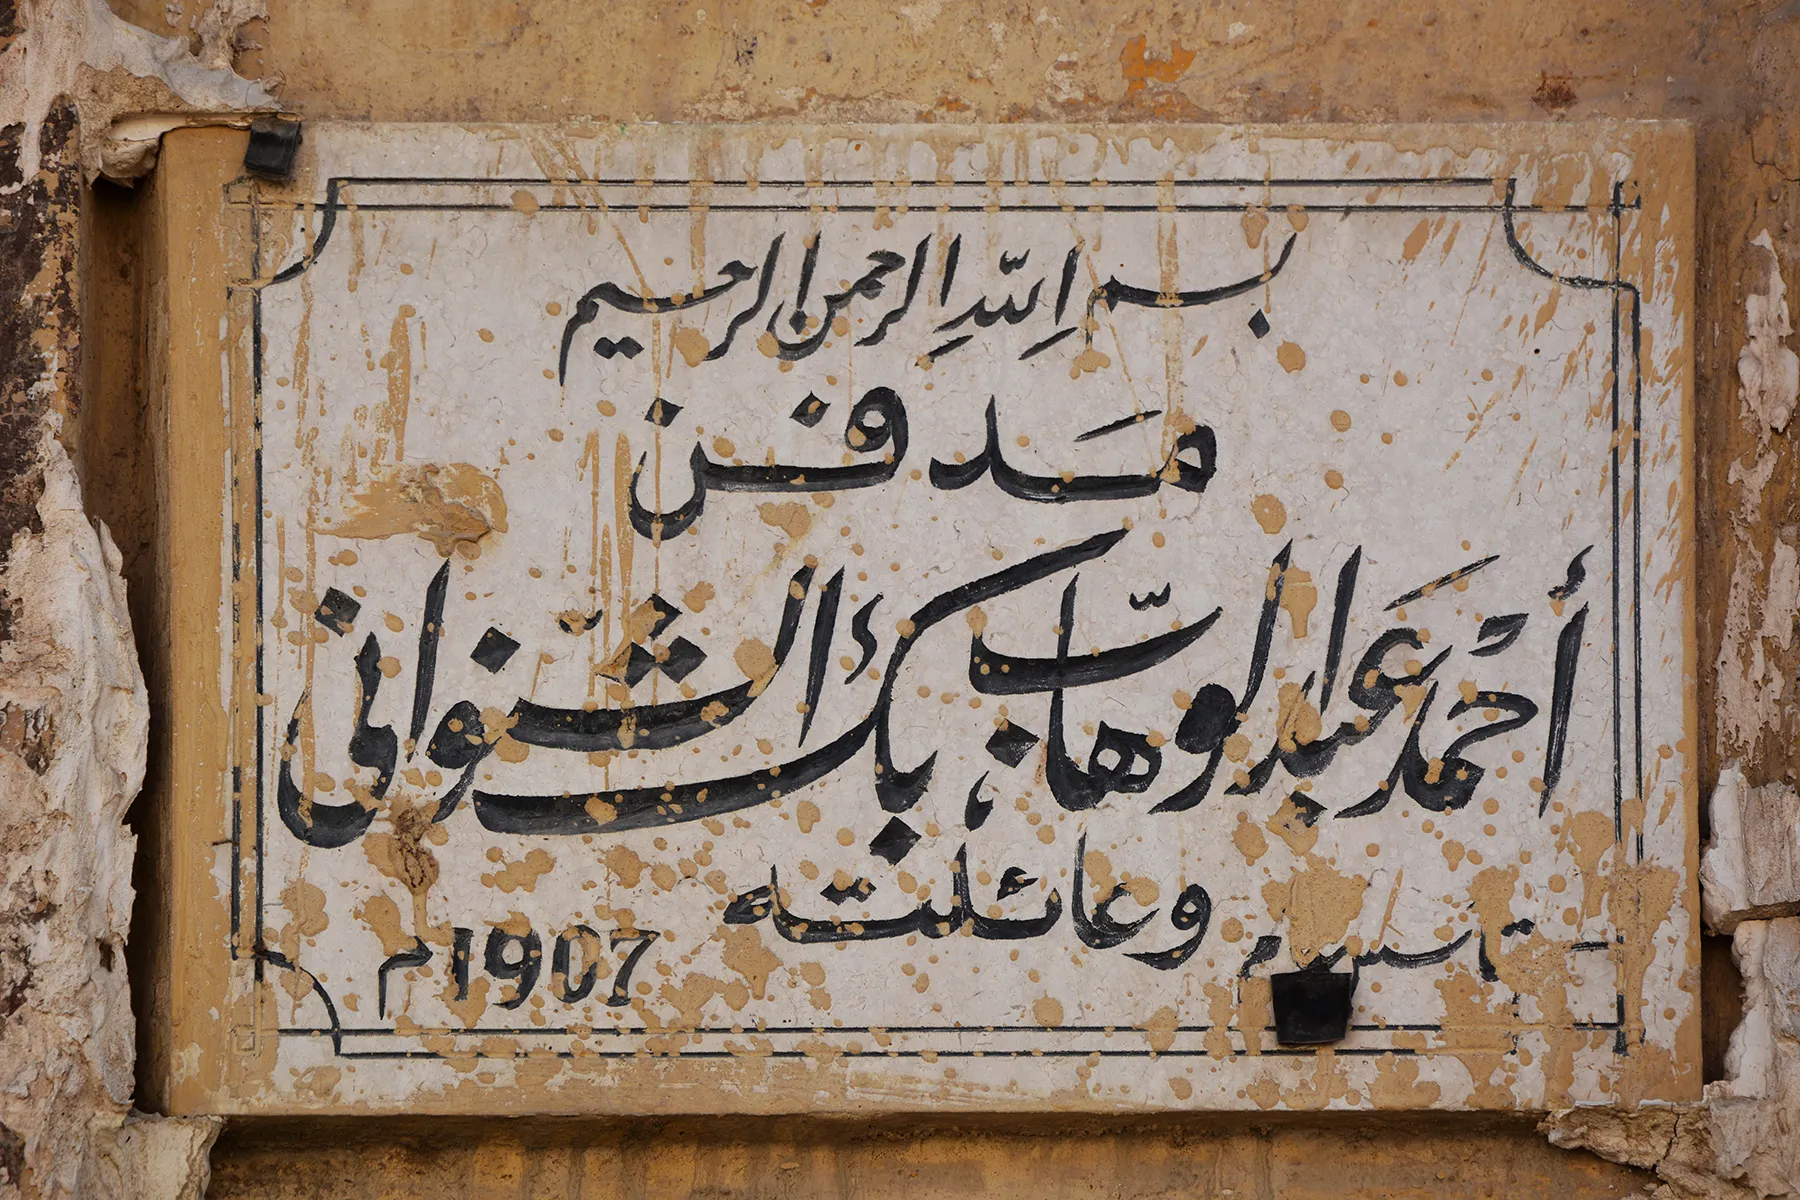 بسم الله الرحمن الرحيم
مَدفن
أحمد عبد الوهاب بك الشنوانى
وعائلته
تأسس م 1907 م